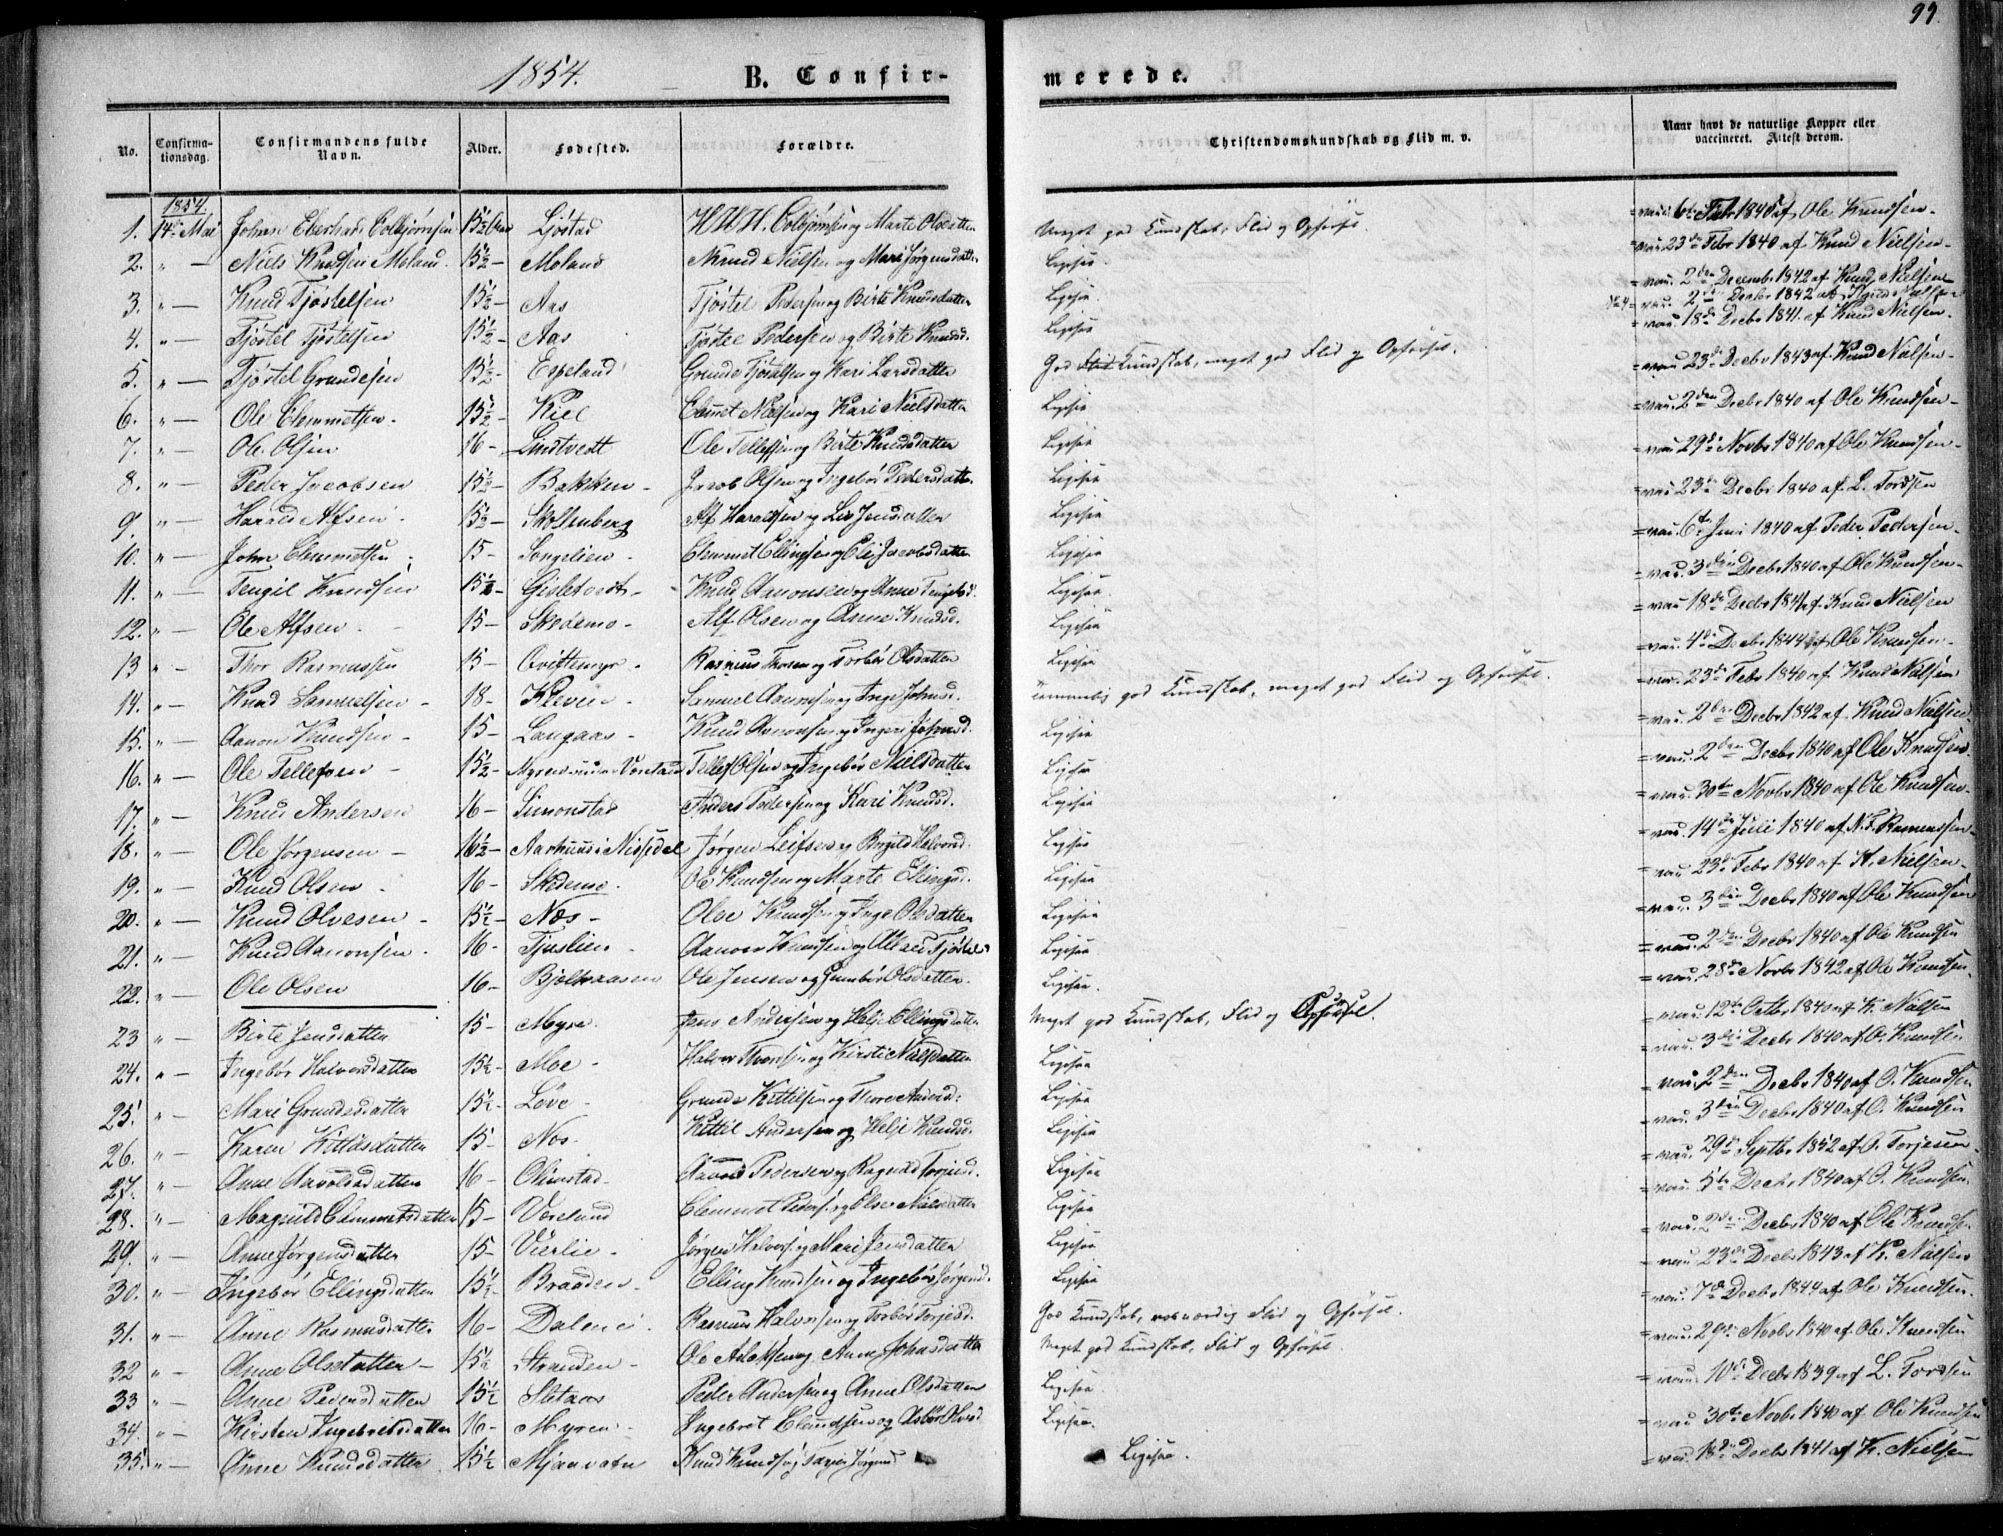 99.
1854. B. Confirmerede.
No. Confirmationsdag. Confirmandens fulde Navn. Alder. Fødested. Forældre. Christendomskundskab og Flid m. v. Naar havt de naturlige Kopper eller vaccineret. Attest derom.
1854.
1. 14de Mai Johan Eberhard Colbjørnsen 15½ Aar Ljøstad Colbjørnsen og Marte Olsdatter Meget god Kundskab, Flid og Opførsel. vac. 6te Febr 1840 af Ole Knudsen
2. " — Niels Knudsen Moland 15½ — Moland Knud Nielsen og Mari Jørgensdatter Ligesaa vac. 23de Febr 1840 af Knud Nielsen
3. " — Knud Tjøstelsen 15½ — Aas Tjøstel Pedersen og Birte Knudsdatter Ligesaa vac. 2den Decembr 1842 af Knud Nielsen
4. " — Tjøstel Tjøstelsen 15½ — Aas Tjøstel Pedersen og Birte Knudsd. Ligesaa No 4 vac. 2den Decbr 1842 af Knud Nielsen
vac. 18de Decbr 1841 af Knud Nielsen
5. " — Tjøstel Grundesen 15½ — Espeland Grunde Tjøstelsen og Kari Larsdatter God Flid Kundskab, meget god Flid og Opførsel. vac. 23de Decbr 1843 af Knud Nielsen
6. " — Ole Clemmetsen 15½ — Kiel Clemet Nilsen og Kari Nielsdatter Ligesaa vac. 2den Decbr 1840 af Ole Knudsen
7. " — Ole Olsen 16 — Lindtvedt Ole Tellefsen og Birte Knudsdatter Ligesaa vac. 29de Novbr 1840 af Ole Knudsen
8. " — Peder Jacobsen 15½ — Bakken Jacob Olsen og Ingebør Pedersdatter Ligesaa vac. 23de Decbr 1840 af L. Tordsen
9. " — Harald Alfsen 15½ — Skoltenberg Alf Haraldsen og Liv Jensdatter Ligesaa vac. 6te Juni 1840 af Peder Pedersen
10. " — John Clemmetsen 15 — Songelien Clemmet Ellingsen og Eli Jacobsdatter Ligesaa vac. 3die Decbr 1840 af Ole Knudsen
11. " — Tengil Knudsen 15½ — Knud Aanonsen og Anne Tengelsd. Ligesaa vac. 18de Decbr 1841 af Knud Nielsen
12. " — Ole Alfsen 15 — Skedemo Alf Olsen og Anne Knudsd. Ligesaa vac. 4de Decbr 1844 af Ole Knudsen
13 " — Thor Rasmussen 15 — Qvittemyr Rasmus Thorsen og Torbør Olsdatter Ligesaa vac. 23de Febr 1840 af Knud Nielsen
14. " — Knud Samuelsen 18 — Kleven Samuel Aanonsen og Inge Johnsd. temmelig god Kundskab, meget god Flid og Opførsel. vac. 2den Decbr 1842 af Knud Nielsen
15. " — Aanon Knudsen 15 — Langaas Knud Aanonsen og Ingeri Johnsd. Ligesaa vac. 2den Decbr 1840 af Ole Knudsen
16. " — Ole Tellefsen 15½ — Myren under Voreland Tellef Olsen og Ingebør Nielsdatter Ligesaa vac. 30te Novbr 1840 af Ole Knudsen
17. " — Knud Andersen 16 — Simonstad Anders Pedersen og Kari Knudsd. Ligesaa vac. 14de Juli 1840 af N. F. Rasmussen
18. " — Ole Jørgensen 16½ — Aarhuus i Nissedal Jørgen Leifsen og Birgild Halvorsd. Ligesaa vac. 23de Febr 1840 af K. Nielsen
19. " — Knud Olsen 16 — Skedemo Ole Knudsen og Marte Ellingsd. Ligesaa vac. 3die Decbr 1840 af Ole Knudsen
20. " — Knud Olvesen 15½ — Næs Olve Knudsen og Inge Olsdatter Ligesaa vac. 2den Decbr 1840 af Ole Knudsen
21. " — Knud Aanonsen 16 — Tjuslien Aanon Knudsen og Tjøstels Ligesaa vac. 28de Novbr 1842 af Ole Knudsen
22. " — Ole Olsen 16 — Bjelkaasen Ole Jensen og Gunbør Olsdatter Ligesaa vac. 12te Octbr 1840 af K. Nielsen
23 " — Birte Jensdatter 15 — Myre Jens Andersen og Helje Ellingsdatter Meget god Kundskab, Flid og Opførsel. vac. 3die Decbr 1840 af O. Knudsen
24. " — Ingebør Halvorsdatter 15½ — Moe Halvor Thorsen og Kirsti Nielsdatter Ligesaa vac. 2den Decbr 1840 af O. Knudsen
25. " — Mari Grundesdatter 15½ — Løve Grunde Kittilsen og Thore Andersd. Ligesaa vac. 3die Decbr 1840 af O. Knudsen
26. " — Karen Kittilsdatter 15 — Nos Kittil Andersen og Helje Knudsd. Ligesaa vac. 29de Septbr 1852 af O. Torjesen
27. " — Anne Aavoldsdatter 16 — Olimstad Aavold Pedersen og Ragnild Torjusd. Ligesaa vac. 5te Decbr 1840 af O. Knudsen
28. " — Magnild Clemmetsdatter 15 — Voreland Clemmet Peders. og Else Nielsdatter Ligesaa vac. 2den Decbr 1840 af Ole Knudsen
29. " — Anne Jørgensdatter 15 — Vierlie Jørgen Halvors. og Mari Jensdatter Ligesaa vac. 23de Decbr 1843 af K. Nielsen
30. " — Ingebør Ellingsdatter 15½ — Braaden Elling Knudsen og Ingebør Jørgensd. Ligesaa vac. 7de Decbr 1844 af Ole Knudsen
31. " — Anne Rasmusdatter 16 — Dalene Rasmus Halvorsen og Torbør Torjesd. God Kundskab, roesværdig Flid og Opførsel. vac. 29de Novbr 1840 af Ole Knudsen
32 " — Anne Olsdatter 15½ — Stranden Ole Aslaksen og Anne Johnsdatter Meget god Kundskab, Flid og Opførsel. vac. 10de Decbr 1839 af L. Tordsen
33 " — Anne Pedersdatter 15½ — Slotaas Peder Andersen og Anne Olsdatter Ligesaa vac. 30te Novbr 1840 af Ole Knudsen
34. " — Kirsten Ingebretsdatter 16 — Myren Ingebret Knudsen og Asbør Olvesd. Ligesaa vac. 18de Decbr 1841 af K. Nielsen
35. " — Anne Knudsdatter 15½ — Mjaavatn Knud Knuds. og Tarjer Jørgensd. Ligesaa.